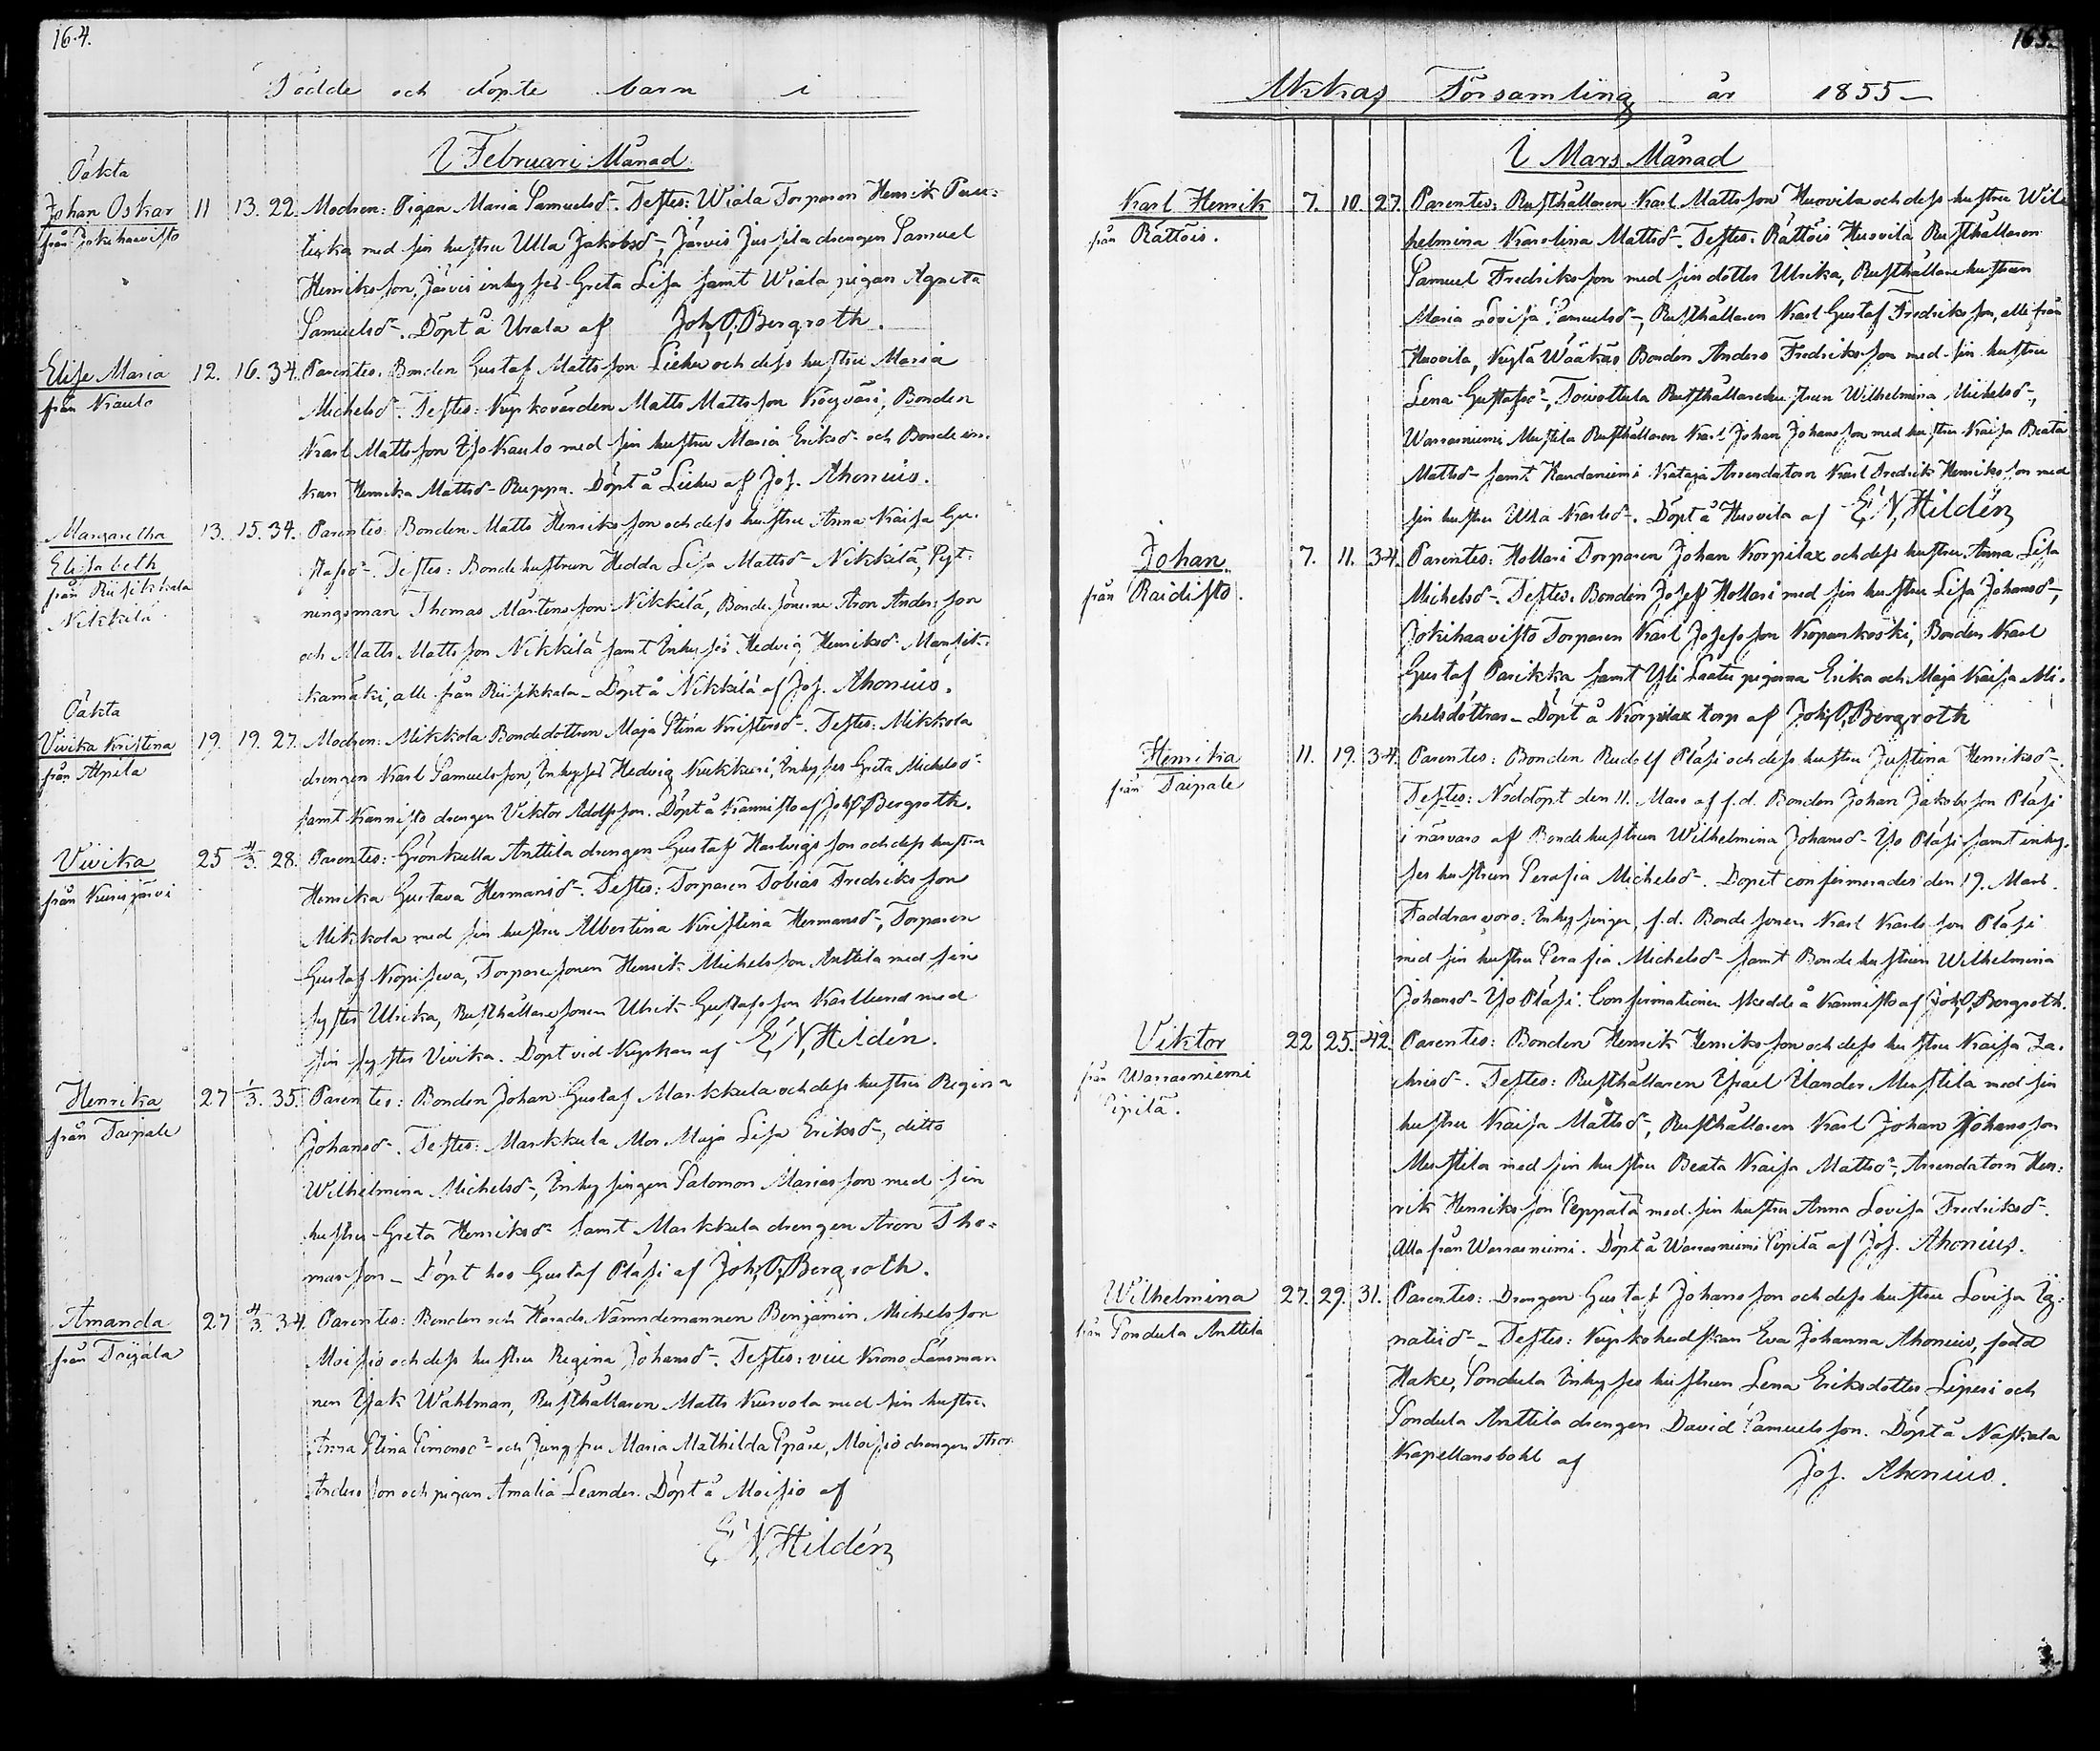 164.
Födde och döpte barn i
I Februari Månad
Oäkta
Johan Oskar 11 13. 22. Modren: Pigan Maria Samuelsdr. Testes: Wiala Torparen Henrik
från Jokihaavisto
med sin hustru Ulla Jakobsdr, Järvis Jussila drengen Samuel
Henriksson, Järvis inhyses Greta Lisa samt Wiala pigan Agneta
Samuelsdr. Döpt å Urala af Joh. O. Bergroth.
Elise Maria 12. 16. 34. Parentes: Bonden Gustaf Mattsson Lieke och dess hustru Maria
från Kaulo
Michelsdr. Testes: Kyrkovärden Matts Mattsson, Bonden
Karl Mattsson Iso Kaulo med sin hustru Maria Eriksdr och Bondeen-
kan Henrika Mattsdr Ruppa. Döpt å Lieke af Jos. Ahonius.
Margaretha 13. 15. 34. Parentes: Bonden Matts Henriksson och dess hustru Anna Kaisa Gu-
Elisabeth
från Riisikkala
Nikkilä
stafsdr. Testes: Bondehustrun Hedda Lisa Mattsdr Nikkilä, Syt-
ningsman Thomas Mårtensson Nikkilä, Bondesönerne Aron Andersson
och Matts Mattsson Nikkilä samt Inhyses Hedvig Henriksdr Mansik-
kamäki, alle från Riisikkala. Döpt å Nikkilä af Jos. Ahonius.
Oäkta
Vivika Kristina 19. 19. 27. Modren: Mikkola Bondedottren Maja Stina Kristersdr. Testes: Mikkola
från Alpila
drengen Karl Samuelsson, Inhyses Hedvig Kukkuri, Inhyses Greta Michelsdr
samt Kannisto drengen Viktor Adolfsson. Döpt å Kannisto af Joh. O. Bergroth.
Vivika 25 4/3. 28. Parentes: Grönkulla Anttila drengen Gustaf Hartvigsson och dess hustru
från Kurisjärvi
Henrika Gustava Hermansdr. Testes: Torparen Tobias Fredriksson
Mikkola med sin hustru Albertina Kristina Hermansdr, Torparen
Gustaf, Torparesonen Henrik Michelsson Anttila med sin
syster Ulrika, Rusthållaresonen Ulrik Gustafsson Karllund med
sin syster Vivika. Döpt vid Kyrkan af E. N. Hildén.
Henrika 27 1/3. 35. Parentes: Bonden Johan Gustaf Markkula och dess hustru Regina
från Taipale
Johansdr. Testes: Markkula Mor Maja Lisa Eriksdr, ditto
Wilhelmina Michelsdr, Inhysingen Salomon Mariasson med sin
hustru Greta Henriksdr samt Markkula drengen Aron Tho-
masson. Döpt hos Gustaf Pläsi af Joh. O. Bergroth.
Amanda 27 4/3. 34. Parentes: Bonden och Härads Nämndemannen Benjamin Michelsson
från Toijala
Moisio och dess hustru Regina Johansdr. Testes: vice Krono Länsman-
nen Isak Wahlman, Rusthållaren Matts Kurvola med sin hustru
Anna Stina Simonsdr och Jungfru Maria Mathilda, Moisio drengen Aron
Andersson och pigan Amalia Leander. Döpt å Moisio af
E. N. Hildén
165.
Akkas Församling år 1855
I Mars Månad
Karl Henrik 7. 10. 27. Parentes: Rusthållaren Karl Mattsson Huovila och dess hustru Wil-
från Rättöis.
helmina Karolina Mattsdr. Testes: Rättöis Huovila Rusthållaren
Samuel Fredriksson med sin dotter Ulrika, Rusthållarehustrun
Maria Lovisa Samuelsdr, Rusthållaren Karl Gustaf Fredriksson, alle från
Huovila, Kylä Wääkäs Bonden Anders Fredriksson med sin hustru
Lena Gustafsdr, Toivottula Rusthållarehustrun Wilhelmina Michelsdr,
Warrasniemi Mustila Rusthållaren Karl Johan Johansson med hustru Kaisa Beata
Mattsdr samt Haudaniemi Kataja Arrendatorn Karl Fredrik Henriksson med
sin hustru Ulla Karlsdr. Döpt å Huovila af E. N. Hildén
Johan 7. 11. 34. Parentes: Hollari Torparen Johan Korpilax och dess hustru Anna Lisa
från Raidisto.
Michelsdr. Testes: Bonden Josef Hollari med sin hustru Lisa Johansdr,
Jokihaavisto Torparen Karl Josefsson Kopankoski, Bonden Karl
Gustaf Parikka samt Yli Laatu pigorna Erika och Maja Kaisa Mi-
chelsdöttrar. Döpt å Korpilax torp af Joh. O. Bergroth
Henrika 11. 19. 34. Parentes: Bonden Rudolf Pläsi och dess hustru Justina Henriksdr.
från Taipale
Testes: Nöddöpt den 11. Mars af f.d. Bonden Johan Jakobsson Pläsi
i närvaro af Bondehustrun Wilhelmina Johansdr Iso Pläsi samt inhy-
ses hustrun Serafia Michelsdr. Dopet confirmerades den 19. Mars.
Faddrar voro: Inhysingen, f.d. Bondesonen Karl Karlsson Pläsi
med sin hustru Serafia Michelsdr samt Bondehustrun Wilhelmina
Johansdr Iso Pläsi. Confirmationen skedde å Kannisto af Joh. O. Bergroth.
Viktor 22 25. 42. Parentes: Bonden Henrik Henriksson och dess hustru Kaisa Za-
från Warrasniemi
Pipilä.
chrisdr. Testes: Rusthållaren Israel Mustila med sin
hustru Kaisa Mattsdr, Rusthållaren Karl Johan Johansson
Mustila med sin hustru Beata Kaisa Mattsdr, Arrendatorn Hen-
rik Henriksson Peppala med sin hustru Anna Lovisa Fredriksdr.
Alla från Warrasniemi. Döpt å Warrasniemi Pipilä af Jos. Ahonius.
Wilhelmina 27. 29. 31. Parentes: Drengen Gustaf Johansson och dess hustru Lovisa Ig-
från Sondula Anttila
natiidr. Testes: Kyrkoherdskan Eva Johanna Ahonius, född
Hake, Sondula Inhyses hustrun Lena Eriksdotter Lipesi och
Sondula Anttila drengen David Samuelsson. Döpt å Naskala
Kapellansbohl af Jos. Ahonius.